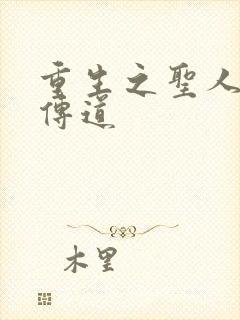 重生之聖人
傳道
木里